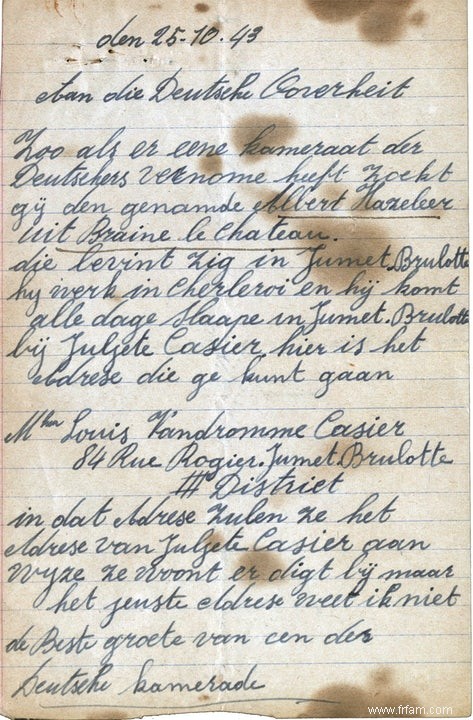 den 25-10-43
Aan die Deutsche Ooverheit
Zoo als er eene kameraat der
Deutschers vernome heeft zoekt
gij den genamde Albert Hazeleer
uit Braine le Chateau.
die bevint zig in Jumet.Brulotte
hij werk in Cherleroi en hij komt
alle dage slaape in Jumet.Brulotte
bij Juljete Casier hier is het
Adrese die ge kunt gaan
Mher Louis Vandromme Casier
84 Rue Rogier.Jumet.Brulotte
III District
in dat Adrese zulen ze het
Adrese van Juljete Casier aan
wyze ze woont er digt bij maar
het jeuste Adrese weet ik niet
de Beste groete van een der
Deutsche kamerade
www.frfam.com